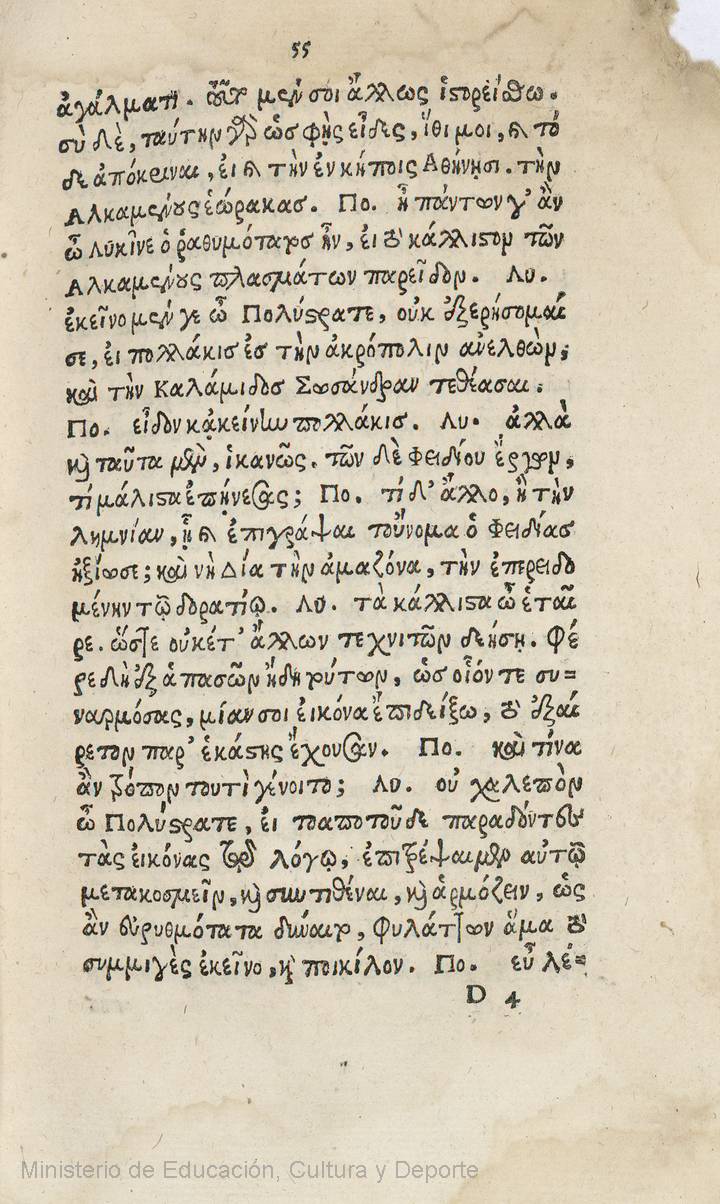 55
ἀγάλματι. τοῦτο μὲν σοι ἄλλως ἱστορείσθω.
σὺ δὲ, ταύτην γὰρ ὡς φῂς εἶδες, ἴθι μοι, καὶ τό
δε ἀπόκριναι, εἰ καὶ τὴν ἐν κήποις Ἀθήνησι. τὴν
Ἀλκαμένους ἑώρακας. Πο. ἦ πάντων γ' ἂν
ὦ Λυκῖνε ὁ ῥαθυμότατος ἦν, εἰ τὸ κάλλιστον τῶν
Ἀλκαμένους πλασμάτων παρεῖδον. Λυ.
ἐκεῖνο μέν γε ὦ Πολύστρατε, οὐκ ἐξερήσομαί
σε, εἰ πολλάκις ἐς τὴν ἀκρόπολιν ἀνελθὼν,
καὶ τὴν Καλάμιδος Σωσάνδραν τεθέασαι.
Πο. εἶδον κἀκείνην πολλάκις. Λυ. ἀλλὰ
καὶ ταῦτα μὲν, ἱκανῶς. τῶν δὲ Φειδίου ἔργων,
τί μάλιστα ἐπῄνεσας; Πο. τί δ' ἄλλο, ἢ τὴν
λημνίαν, ᾗ καὶ ἐπιγράψαι τοὔνομα ὁ Φειδίας
ἠξίωσε; καὶ νὴ Δία τὴν ἀμαζόνα, τὴν ἐπερειδο
μένην τῷ δορατίῳ. Λυ. τὰ κάλλιστα ὦ ἑταῖ
ρε. ὥστε οὐκέτ' ἄλλων τεχνιτῶν δεήσῃ. Φέ
ρε δὴ ἐξ ἁπασῶν ἤδη τούτων, ὡς οἷόν τε συ=
ναρμόσας, μίαν σοι εἰκόνα ἐπιδείξω, τὸ ἐξαί
ρετον παρ' ἑκάστης ἔχουσαν. Πο. καὶ τίνα
ἂν τρόπον τουτὶ γένοιτο; Λυ. οὐ χαλεπὸν
ὦ Πολύστρατε, εἰ τοαπο τοῦδε παραδόντες
τὰς εἰκόνας τῷ λόγῳ, ἐπιτρέψαιμεν αὐτῷ
μετακοσμεῖν, καὶ συντιθέναι, καὶ ἁρμόζειν, ὡς
ἂν εὐρυθμότατα δύναιτο, φυλάττων ἅμα τὸ
συμμιγὲς ἐκεῖνο, καὶ ποικίλον. Πο. εὖ λέ=
D 4
Ministerio de Educación, Cultura y Deporte